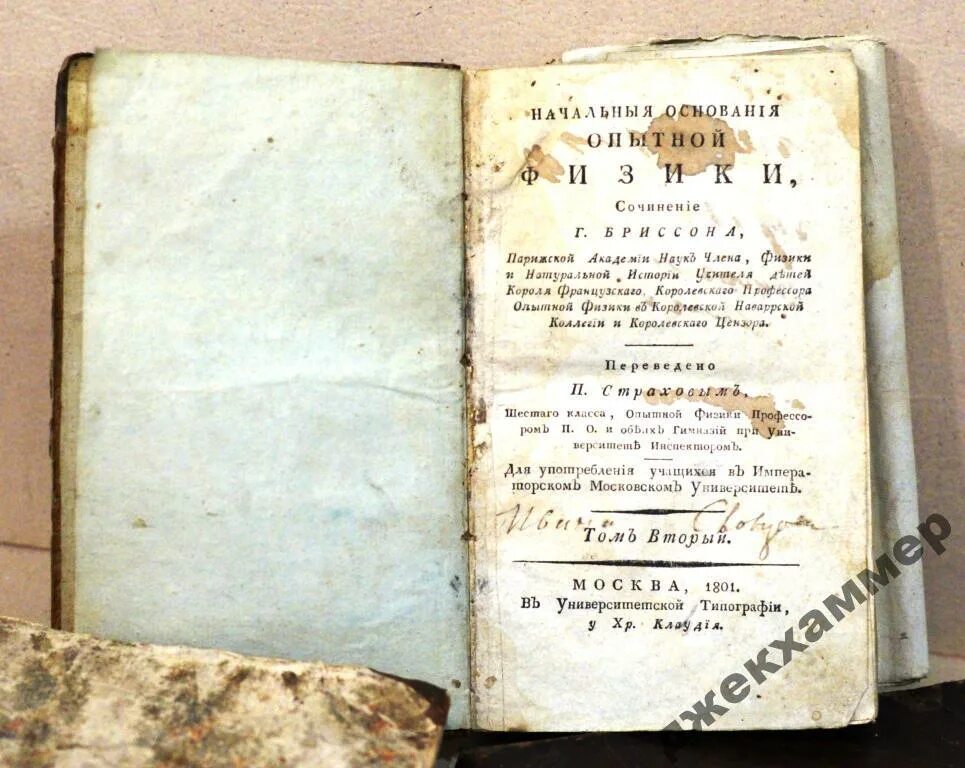 НАЧАЛЬНЫЯ ОСНОВАНІЯ
ОПЫТНОЙ
ФИЗИКИ,
Сочиненіе
Г. БРИССОНА,
Парижской Академіи Наукъ Члена, Физики
и Натуральной Исторіи Учителя дѣтей
Короля Французскаго, Королевскаго Профессора
Опытной Физики въ Королевской Наваррской
Коллегіи и Королевскаго Цензора.
Переведено
П. Страховымъ,
Шестаго класса, Опытной Физики Профессо-
ромъ П. О. и обѣихъ Гимназій при Уни-
верситетѣ Инспекторомъ.
Для употребленія учащихся въ Импера-
торскомъ Московскомъ Университетѣ.
Ивана
Томъ Вторый.
МОСКВА, 1801.
Въ Университетской Типографіи,
у Хр. Клаудія.
джекхаммер